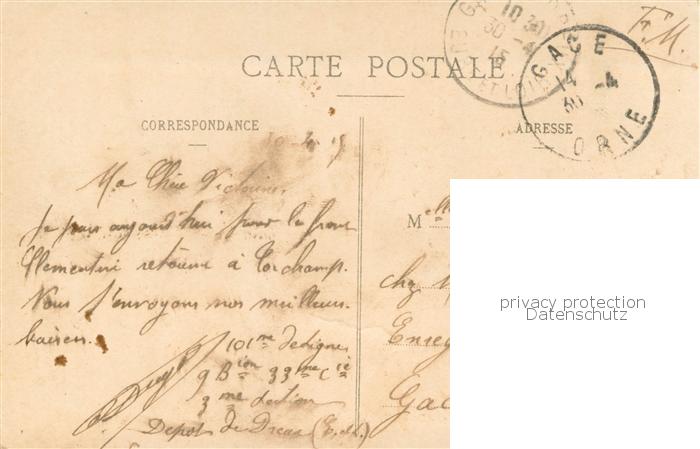 F.M.
10 30
30 -4
15
ET LOIR
GACE
14
30 -4
ORNE
CARTE POSTALE
CORRESPONDANCE
ADRESSE
Ma Chère Victorine,
Je pars aujourd'hui pour le front
Clementine retourne à Torchamp.
Nous t'envoyons nos meilleurs
baisers.
101me de ligne
9 Bion 33me Cie
3me Section
Depot de Dreux (E.-et-L.)
Melle
chez
Enreg
Gac
privacy protection
Datenschutz